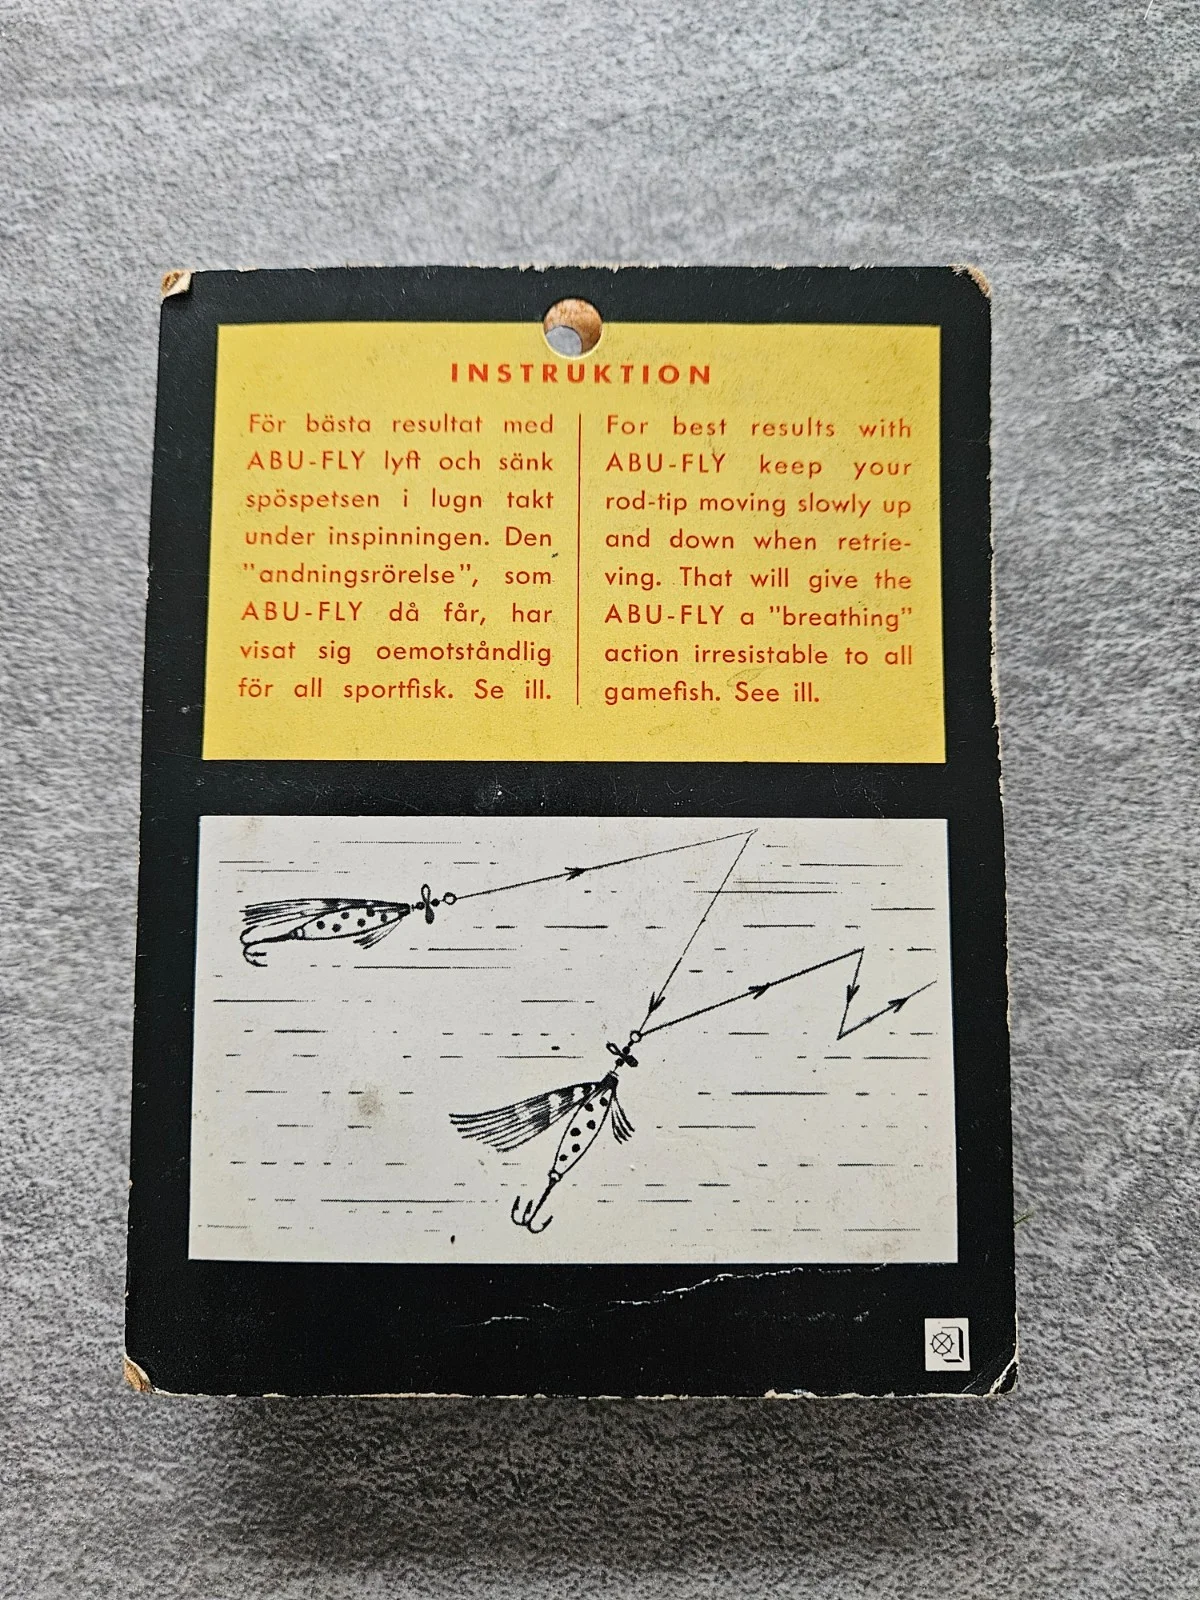 INSTRUKTION
För bästa resultat med
ABU-FLY lyft och sänk
spöspetsen i lugn takt
under inspinningen. Den
"andningsrörelse", som
ABU-FLY då får, har
visat sig oemotståndlig
för all sportfisk. Se ill.
For best results with
ABU-FLY keep your
rod-tip moving slowly up
and down when retrie-
ving. That will give the
ABU-FLY a "breathing"
action irresistable to all
gamefish. See ill.